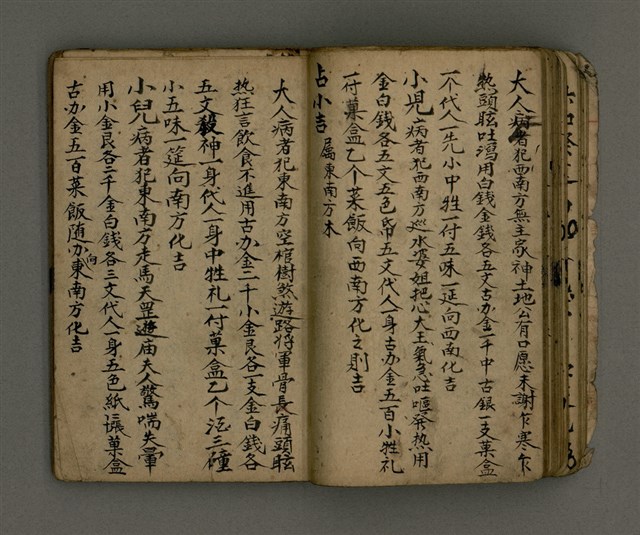 大人病者犯西南方無主家神土地公有口愿未謝乍寒乍
熱頭眩吐瀉用白钱金錢各五文古办金一千中古銀一支菓盒
一个代人一先小中牲一付五味一延向西南化吉
小児病者犯西南方巡水婆姐把心大王氣急吐嘔発热用
金白錢各五文五色帋五文代人一身古办金五百小牲礼
一付菓盒乙个菜飯向西南方化之則吉
占小吉 屬東南方木
大人病者犯東南方空棺樹煞遊路将軍骨長痛頭眩
热狂言飲食不進用古办金二千小金艮各一支金白錢各
五文殺神一身代人一身中牲礼一付菓盒乙个酒三碹
小五味一筵向南方化吉
小兒病者犯東南方走馬天罡遊庙夫人驚喘失暈
用小金艮各二千金白錢各三文代人一身五色紙讓菓盒
古办金五百菜飯随办向東南方化吉